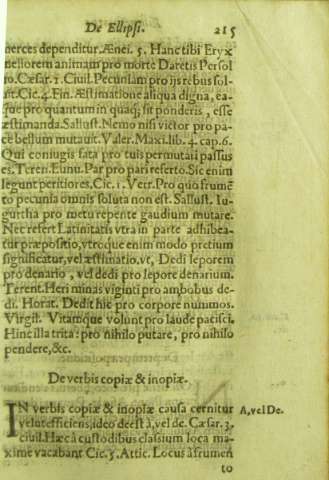 De Ellipsi. 215
nerces dependitur. Ænei. 5. Hanc tibi Eryx
neliorem animam pro morte Daretis Persol
ro. Cæsar. 1. Ciuil. Pecuniam pro ijs rebus sol-
sit. Cic. 4. Fin. Æstimatione aliqua digna, ea-
que pro quantum in quaq; sit ponderis, esse
æstimanda. Sallust. Nemo nisi victor pro pa-
ce bellum mutauit. Valer. Maxi. lib. 4. cap. 6.
Qui coniugis fata pro tuis permutari passus
es. Teren. Eunu. Par pro pari referto. Sic enim
legunt peritiores. Cic. 1. Verr. Pro quo frumē
to pecunia omnis soluta non est. Sallust. Iu-
gurtha pro metu repente gaudium mutare.
Nec refert Latinitatis vtra in parte adhibea-
tur præpositio, vtroque enim modo pretium
significatur, vel æstimatio. vt, Dedi leporem
pro denario, vel dedi pro lepore denarium.
Terent. Heri minas viginti pro ambobus de-
di. Horat. Dedit hic pro corpore nummos.
Virgil. Vitamque volunt pro laude pacisci.
Hinc illa trita: pro nihilo putare, pro nihilo
pendere, &c.
De verbis copiæ & inopiæ.
IN verbis copiæ & inopiæ causa cernitur A, vel De.
velut efficiens, ideo deest à, vel de. Cæsar. 3.
ciuil. Hæc à custodibus classium loca ma-
xime vacabant Cic. 5. Attic. Locus à frumen
to